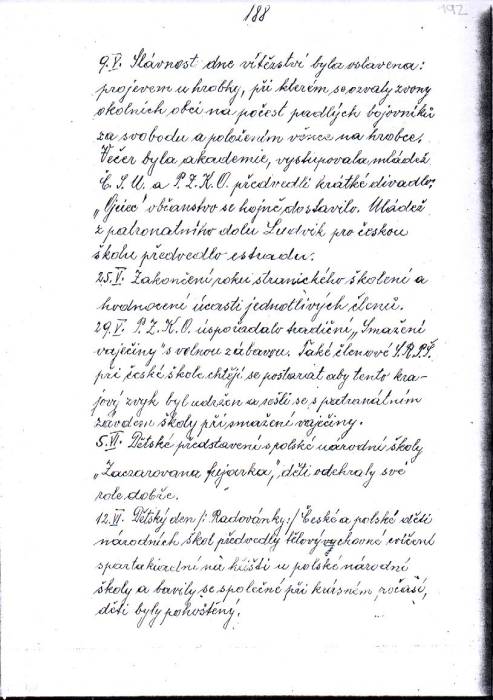 188
192
9.V. Slávnost dne vítězství byla oslavena:
projevem u hrobky, při kterém se ozvaly zvony
okolních obcí na počest padlých bojovníků
za svobodu a položením věnce na hrobce.
Večer byla akademie, vystupovala mládež
Č.S.U. a P.Z.K.O. předvedli krátké divadlo,
občanstvo se hojně dostavilo. Mládež
z patronatního dolu Ludvík pro českou
školu předvedlo estradu.
25.V. Zakončení roku stranického školení a
hodnocení účasti jednotlivých členů.
29.V. P.Z.K.O. úspořádalo tradiční „Smažení
vaječiny" s volnou zábavou. Také členové S.R.P.Š.
při české škole chtějí se postariat aby tento kra-
jový zvyk byl udržen a sešli se s patranátním
závodem školy při smažení vaječiny.
5.VI. Dětské představení s polské národní školy
„Zaczarowana fujarka," děti odehraly své
role dobře.
12.VI. Dětský den /: Radovánky:/ České a polské děti
národních škol předvedly tělovýchovné cvičení
spartakiadní na hřišti u polské národní
školy a bavily se společně při krásném počasí,
děti byly pohoštěny.